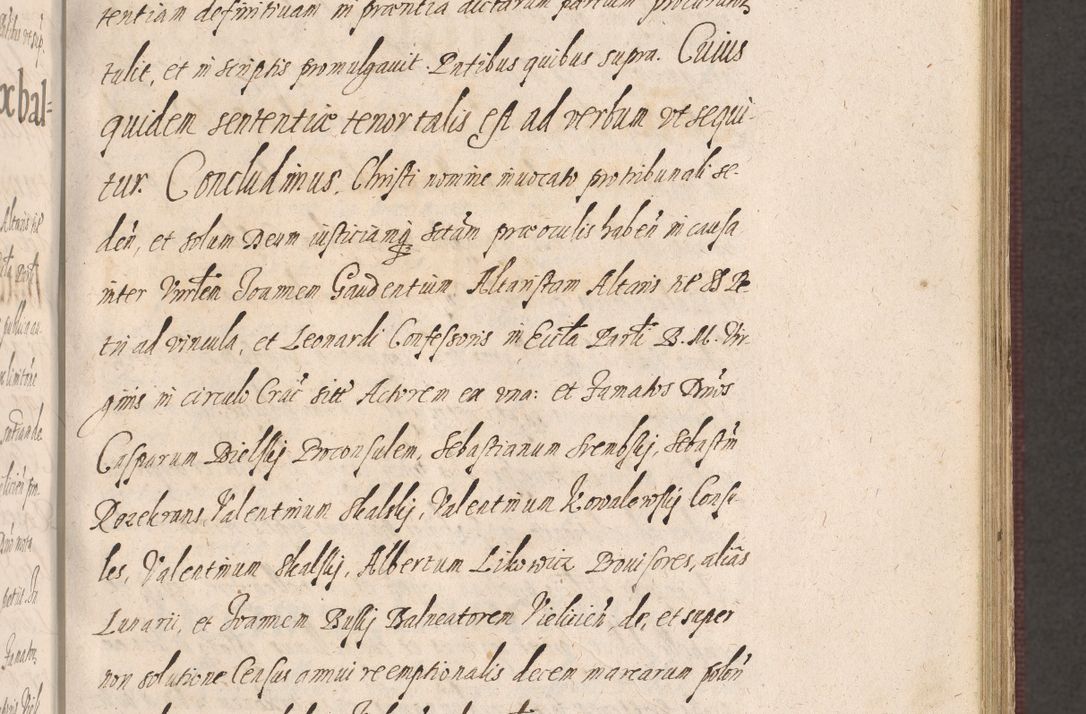 tentiam definitivam in præntia dictarum partium procurator
tulit, et in scriptis promulgavit. Pntibus quibus supra. Cuius
quidem sententiæ tenor talis est ad verbum vt sequi-
tur. Concludimus. Christi nomine invocato pro tribunali se-
den, et solum Deum iusticiamq sctam præ oculis haben in causa
inter Vnrlem Joannem Gaudentium Altaristam Altaris tt SS Pe
tri ad vincula, et Leonardi Confessoris in Eccla Parli B. M. Vir
ginis in circulo Crac sitt Actorem ex una: et Famatos Dnos
Casparum Bielskij Proconsulem, Sebastianum Srembskij, Sebastm
Rozekrans, Valentinum Skalskij, Valentinum Kowalewskij Consu
les, Valentinum Skalskij, Albertum Likowicz Provisores, alias
Lunarii, et Joannem Buskij Balneatorem Vielicien, de, et super
non solutione Census annui reemptionalis decem marcarum polon
xbal=
Altaris tt
Famatos